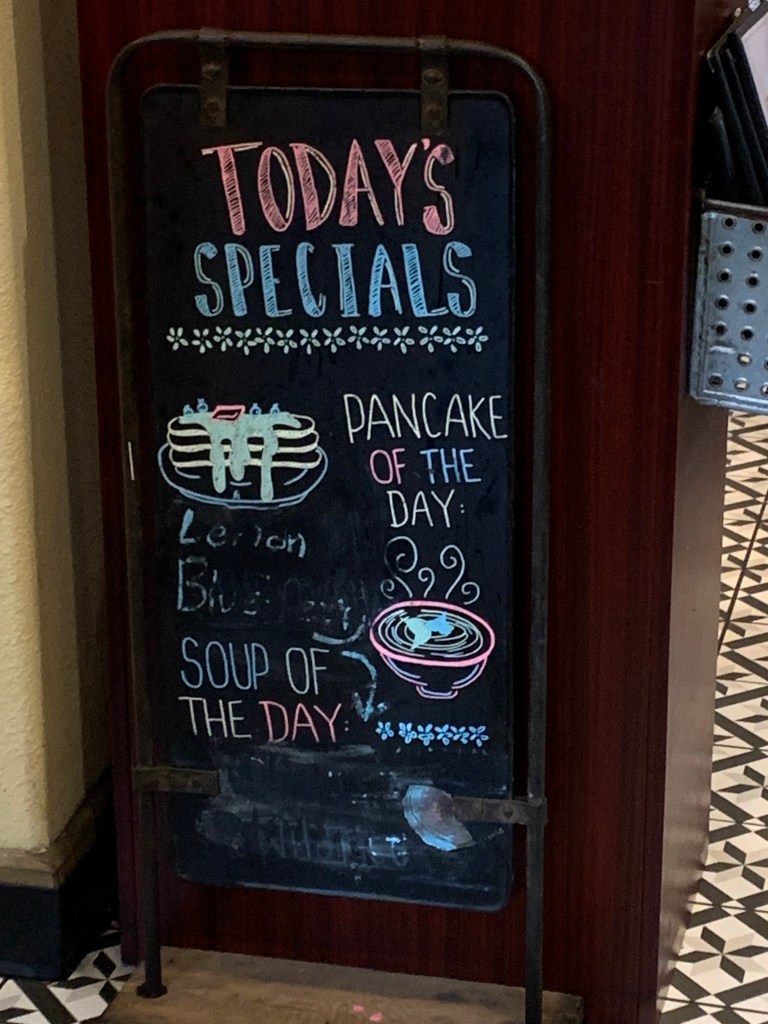 TODAY'S
SPECIALS
PANCAKE
OF THE
DAY:
Lemon
SOUP OF
THE DAY: